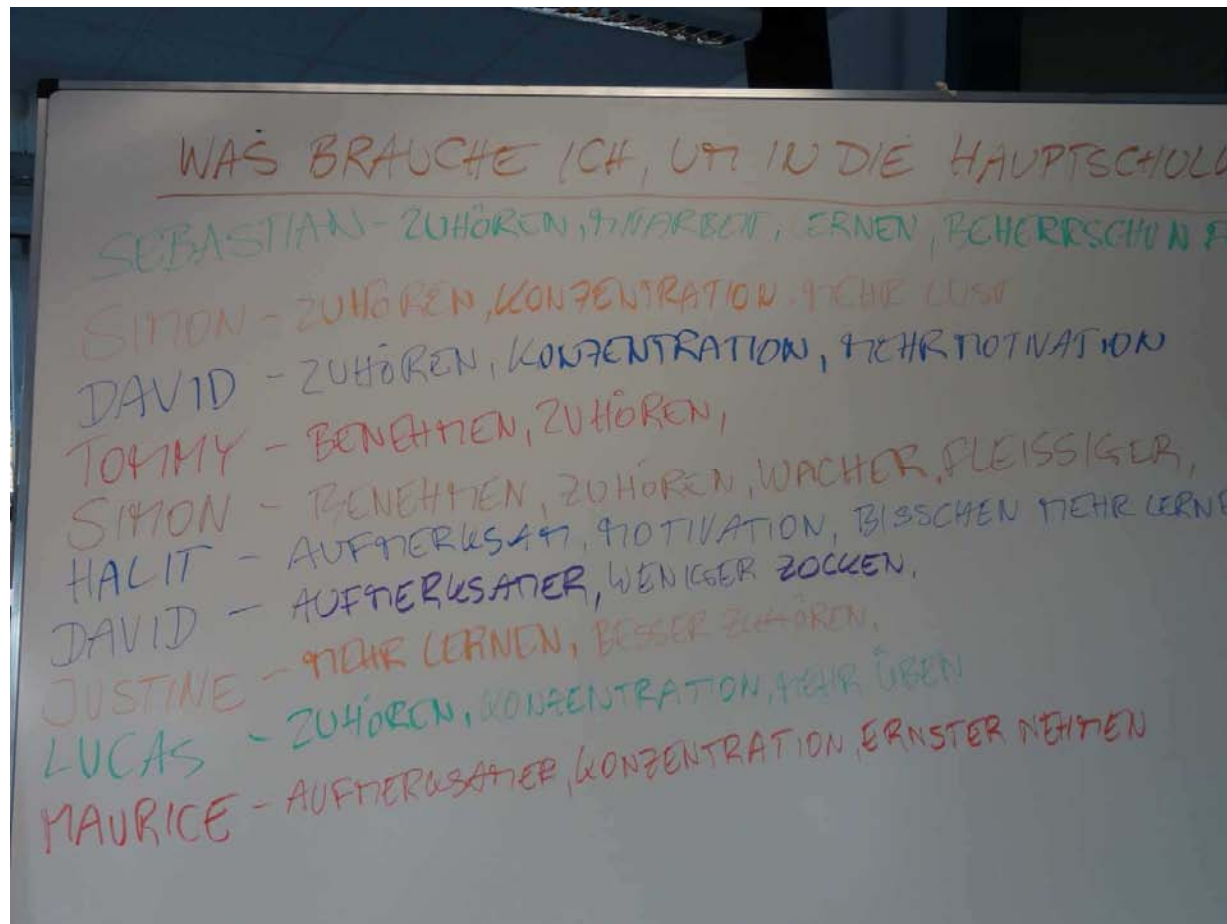 WAS BRAUCHE ICH, UM IN DIE HAUPTSCHULE
SEBASTIAN - ZUHÖREN, MITARBEIT, LERNEN,
SIMON - ZUHÖREN, KONZENTRATION. MEHR LUST
DAVID - ZUHÖREN, KONZENTRATION, MEHR MOTIVATION
TOMMY - BENEHMEN, ZUHÖREN,
SIMON - BENEHMEN, ZUHÖREN, WACHER, FLEISSIGER,
HALIT - AUFMERKSAM, MOTIVATION, BISSCHEN MEHR LERNE
DAVID - AUFMERKSAMER, WENIGER ZOCKEN,
JUSTINE - MEHR LERNEN, BESSER ZUHÖREN,
LUCAS - ZUHÖREN, KONZENTRATION, MEHR ÜBEN
MAURICE - AUFMERKSAMER, KONZENTRATION, ERNSTER NEHMEN